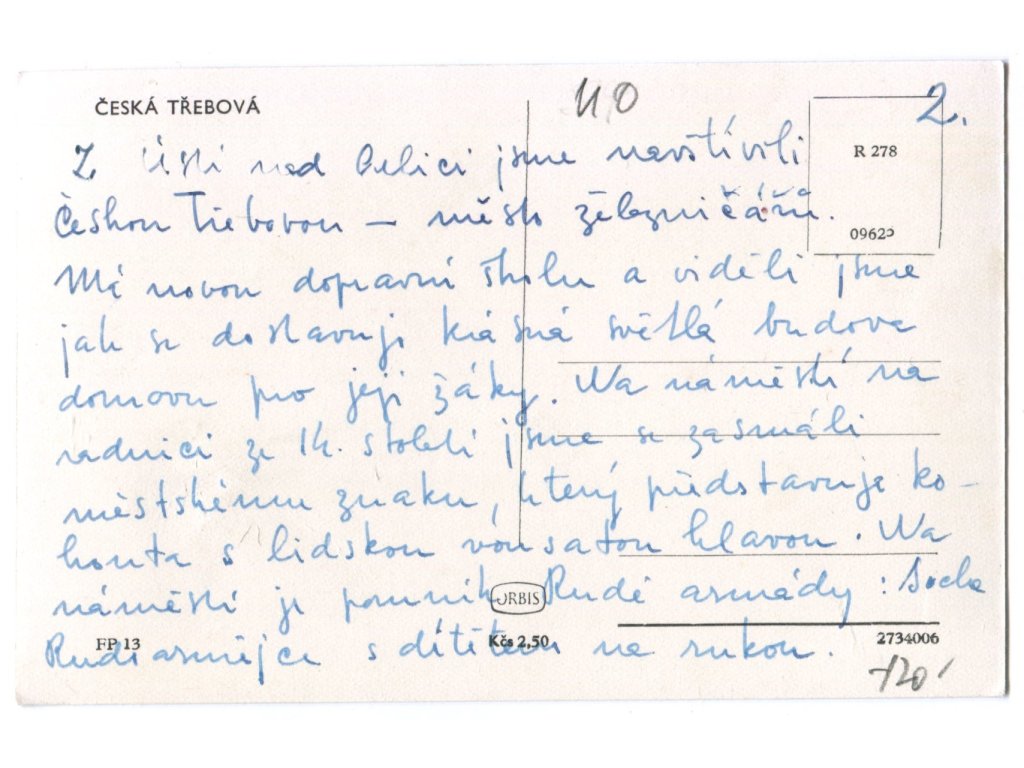 ČESKÁ TŘEBOVÁ
110
2.
R 278
Z Ústí nad Orlicí jsme navštívili
Českou Třebovou – město železničářů.
09625
Má novou dopravní školu a viděli jsme
jak se dostavuje krásná světlá budova
domova pro její žáky. Na náměstí na
radnici ze 14. století jsme se zasmáli
městskému znaku, který představuje ko-
houta s lidskou vousatou hlavou. Na
náměstí je pomník Rudé armády: Socha
ORBIS
Rudoarmějce s dítětem na rukou.
FP 13
Kčs 2,50
2734006